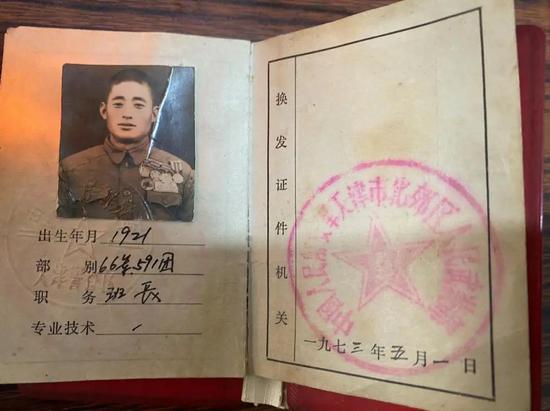 出生年月 1921
部别 66军591团
职务 班长
专业技术
换发证件机关
中国人民解放军天津市北郊区人民武装部
一九七三年五月一日